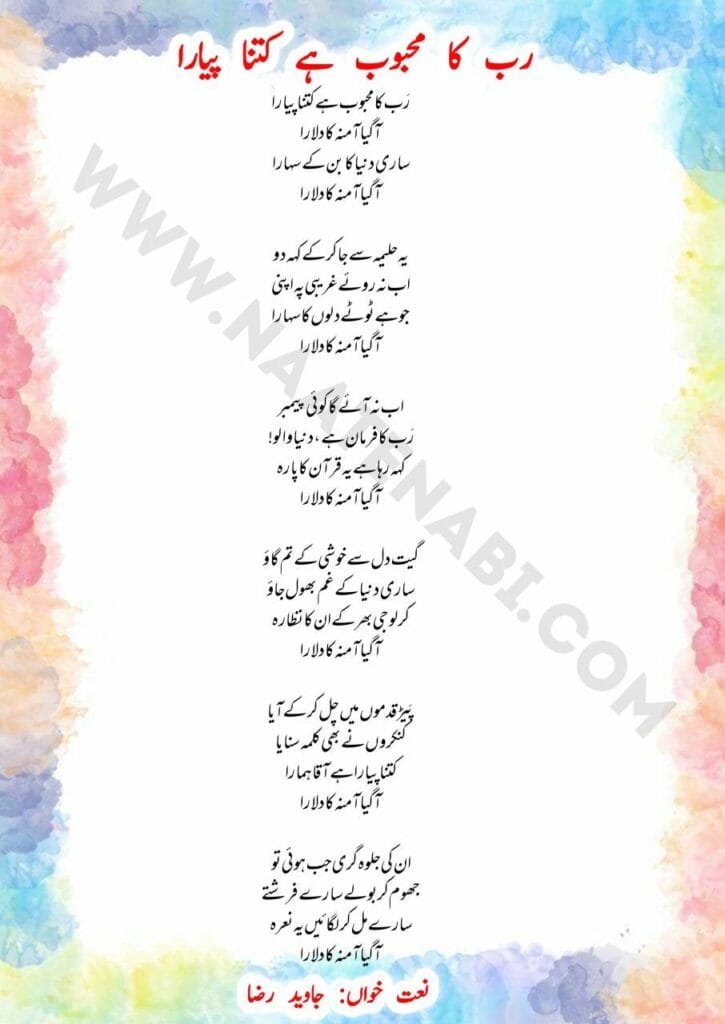 رب کا محبوب ہے کتنا پیارا
رَب کا محبوب ہے کتنا پیارا
آ گیا آمنہ کا دلارا
ساری دنیا کا بن کے سہارا
آ گیا آمنہ کا دلارا
یہ حلیمہ سے جا کر کے کہہ دو
اب نہ روئے غریبی پہ اپنی
جو ہے ٹوٹے دلوں کا سہارا
آ گیا آمنہ کا دلارا
اب نہ آئے گا کوئی پیمبر
رَب کا فرمان ہے، دنیا والو!
کہہ رہا ہے یہ قرآن کا پارہ
آ گیا آمنہ کا دلارا
گیت دل سے خوشی کے تم گاؤ
ساری دنیا کے غم بھول جاؤ
کر لو جی بھر کے ان کا نظارہ
آ گیا آمنہ کا دلارا
پَیڑ قدموں میں چل کر کے آیا
کنکروں نے بھی کلمہ سنایا
کتنا پیارا ہے آقا ہمارا
آ گیا آمنہ کا دلارا
ان کی جلوہ گری جب ہوئی تو
جھوم کر بولے سارے فرشتے
سارے مل کر لگائیں یہ نعرہ
آ گیا آمنہ کا دلارا
نعت خواں: جاوید رضا
WWW.NAATENABI.COM